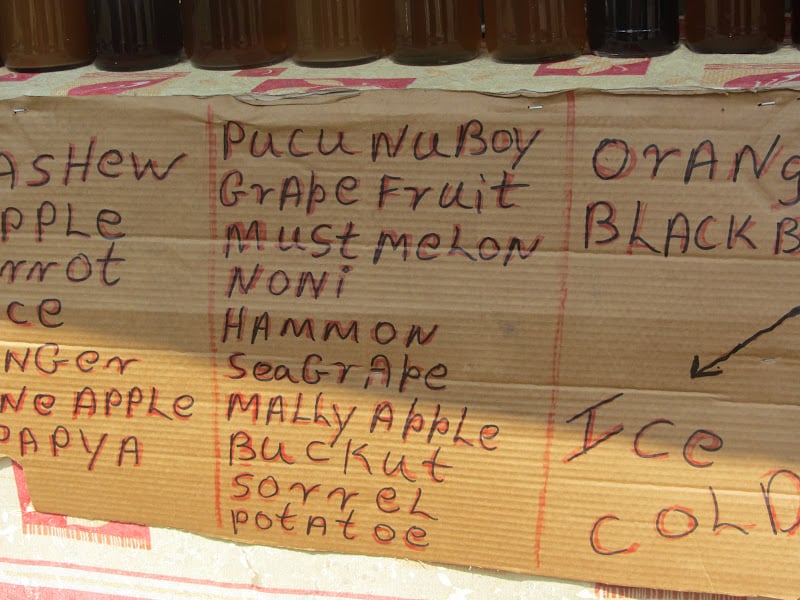 ASHEW
PPLE
rrot
ce
NGer
NeAPPLE
PAPYA
PUCUNUBOY
GrApe Fruit
MUSt MELON
NONi
HAMMON
SeaGrApe
MALLY APPLe
BUCKUt
SOrreL
POtATOe
OrANg
BLACK B
ICe
COLD